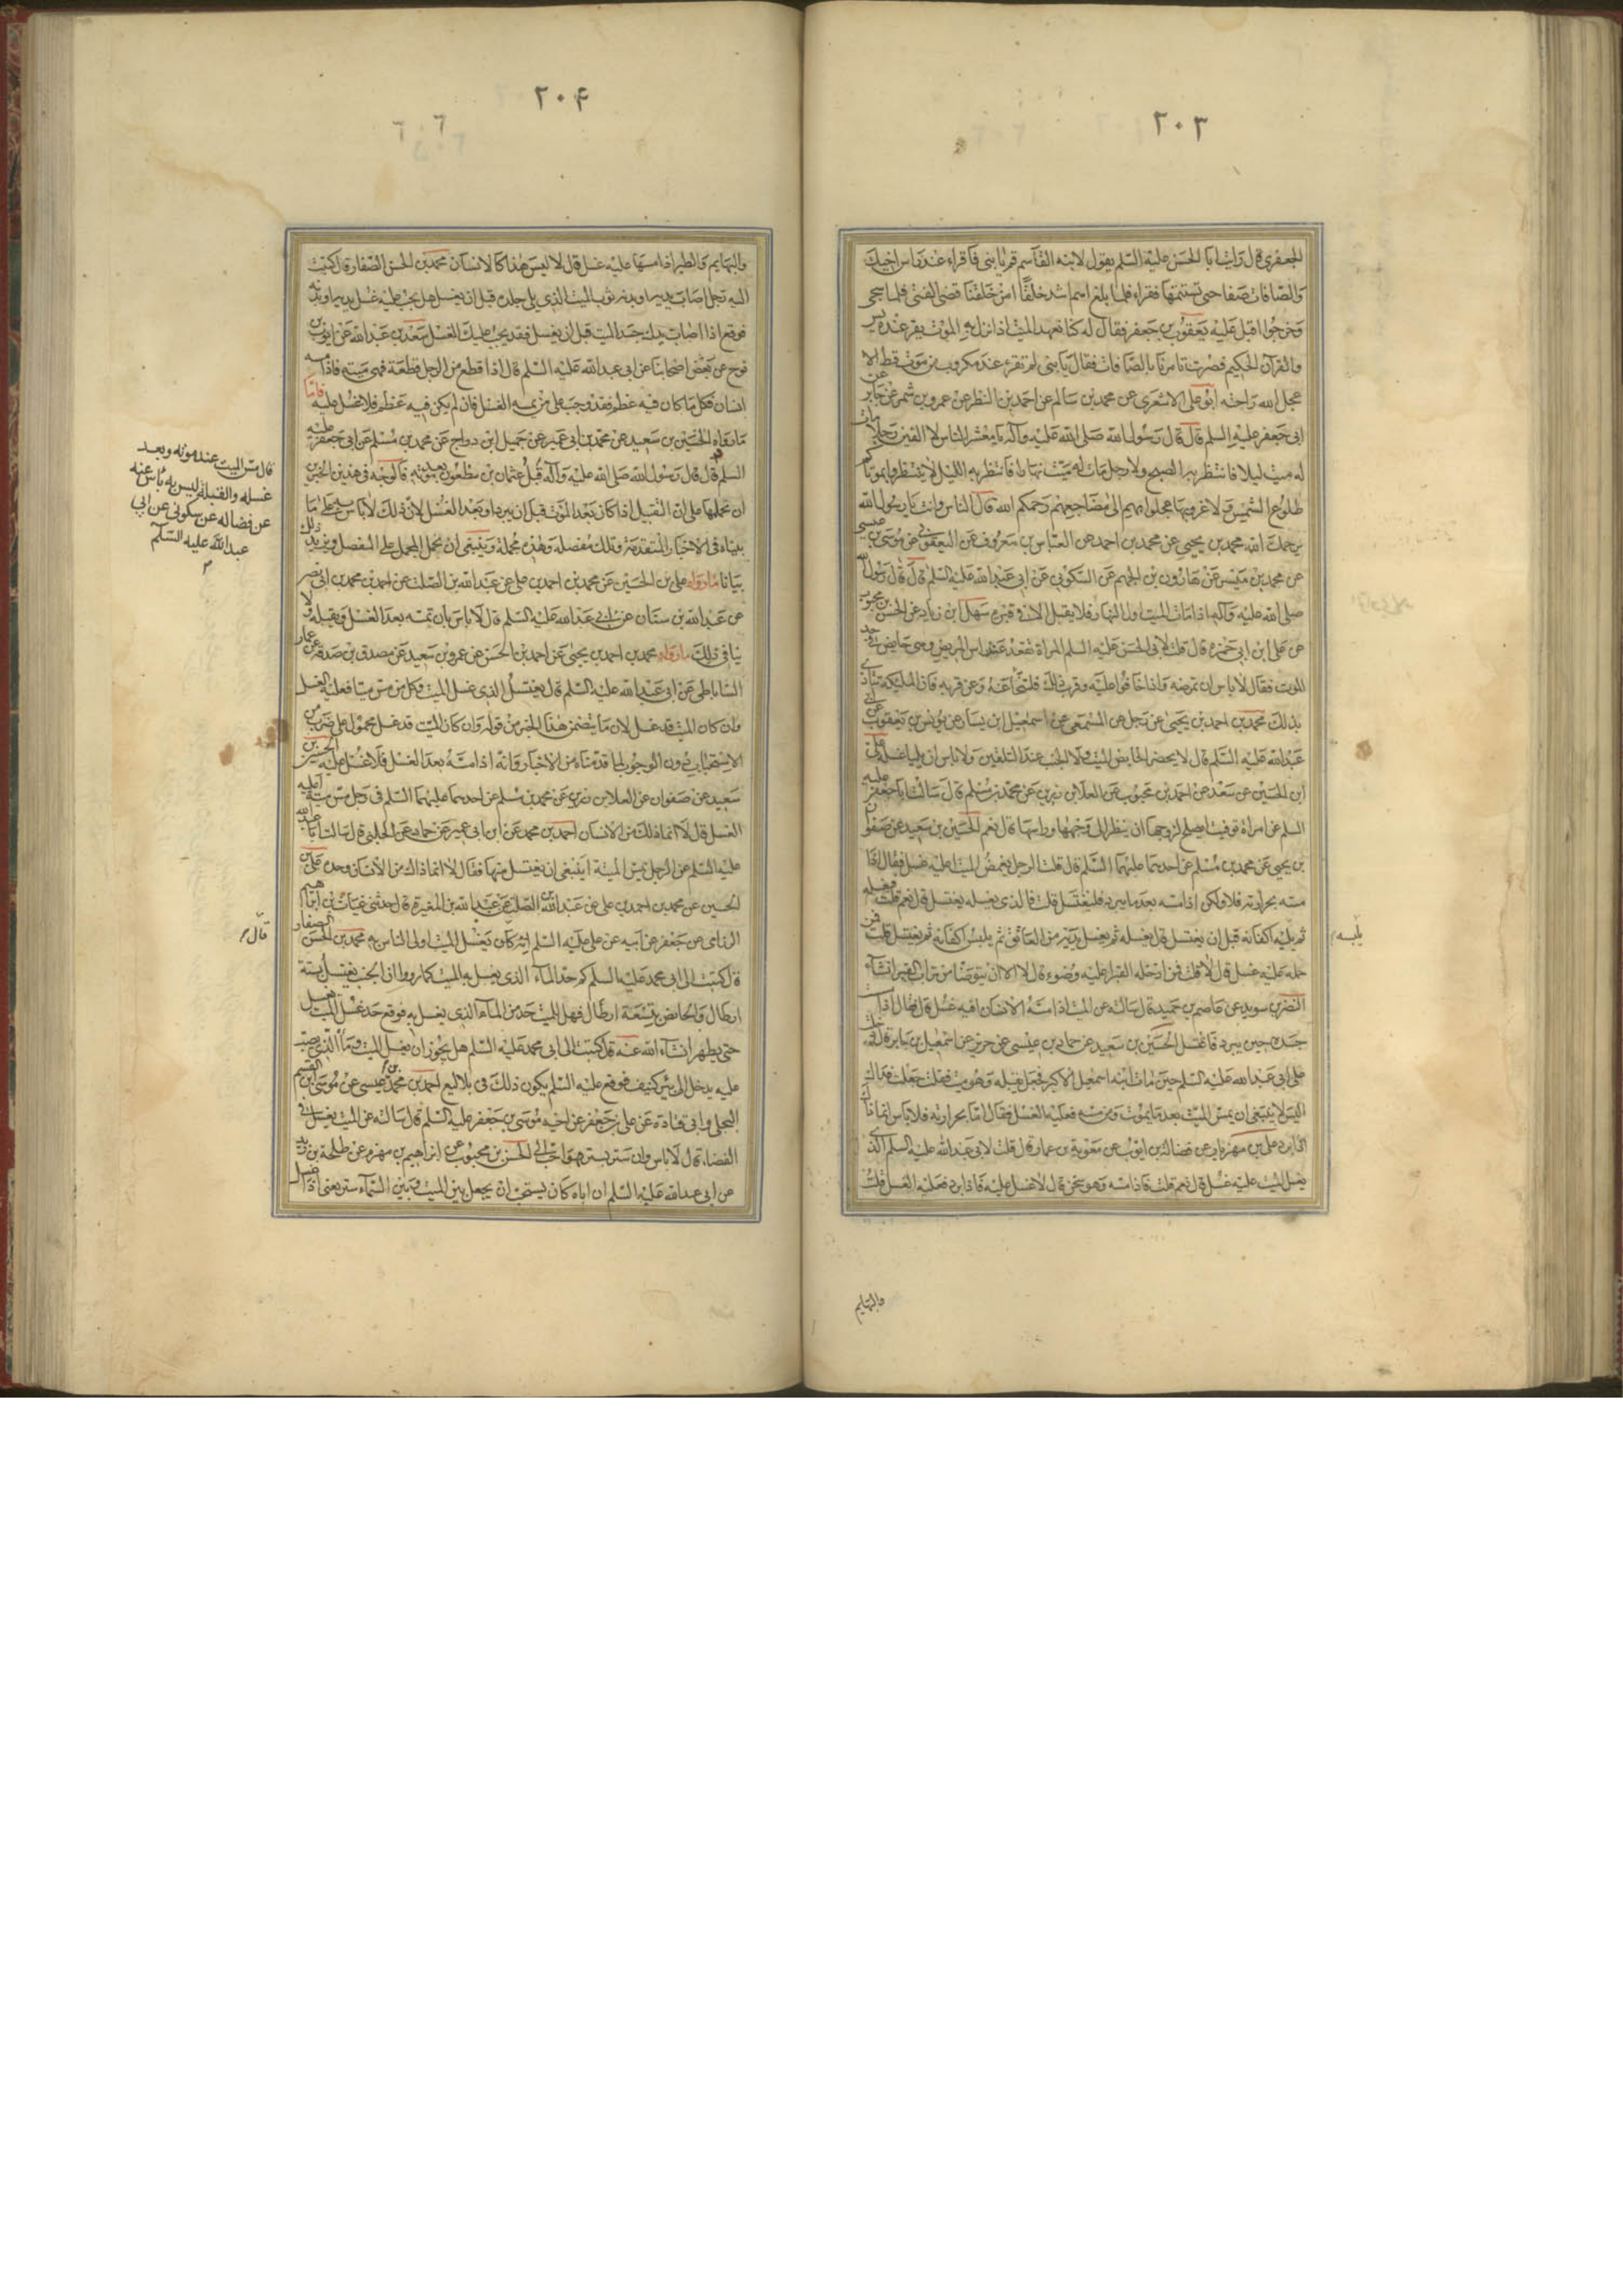 ٢٠٣
الجعفري قال رايت ابا الحسن عليه السلم يقول لابنه القاسم قم يا بني فاقراء عند راس اخيك
والصافات صفا حتى تستتمها فقراء فلما بلغ اهم اشد خلقا امن خلقنا قضى الفتى فلما سجي
وخرجوا اقبل عليه يعقوب بن جعفر فقال له كنا نعهد الميت اذا نزل به الموت يقرء عنده يس
والقرآن الحكيم فصرت تامرنا بالصافات فقال يا بني لم تقرء عند مكروب من موت قط الا
عجل الله راحته ابو علي الاشعري عن محمد بن سالم عن احمد بن النظر عن عمرو بن شمر عن جابر عن
ابي جعفر عليه السلم قال قال رسول الله صلى الله عليه وآله يا معشر الناس لا الفين رجلا مات
له ميت ليلا فانتظر به الصبح ولا رجل مات له ميت نهارا فانتظر به الليل لا تنتظروا بموتاكم
طلوع الشمس ولا غروبها عجلوا بهم الى مضاجعهم رحمكم الله قال الناس وانت يا رسول الله
يرحمك الله محمد بن يحيى عن محمد بن احمد عن العباس بن معروف عن اليعقوبي عن موسى بن عيسى
عن محمد بن ميسر عن هارون بن الجهم عن السكوني عن ابي عبد الله عليه السلم قال قال رسول الله
صلى الله عليه وآله اذا مات الميت اول النهار فلا يقيل الا في قبره سهل بن زياد عن الحسن بن محبوب
عن علي ابن ابي حمزه قال قلت لابي الحسن عليه السلم المراة تقعد عند راس المريض وهي حايض في حد
الموت فقال لا باس ان تمرضه واذا خافوا عليه وقرب ذلك فلتنح عنه وعن قربه فان الملئكة تتاذى
بذلك محمد بن احمد بن يحيى عن رجل عن المسمعي عن اسمعيل ابن يسار عن يونس بن يعقوب عن ابي
عبد الله عليه السلم قال لا يحضر الحايض الميت ولا الجنب عند التلقين ولا باس ان يليا غسله علي
ابن الحسين عن سعد عن احمد بن محبوب عن العلا بن رزين عن محمد بن مسلم قال سالت ابا جعفر عليه
السلم عن امراة توفيت ايصلح لزوجها ان ينظر الى وجهها وراسها قال نعم الحسين بن سعيد عن صفوان
بن يحيى عن محمد بن مسلم عن احدهما عليهما السلم قال قلت الرجل يغمض الميت اعليه غسل فقال اذا
مته بحرارته فلا ولكن اذا مسه بعد ما يبرد فليغتسل قلت فالذي يغسله يغتسل قال نعم قلت فيغسله
ثم يلبسه اكفانه قبل ان يغتسل قال يغسله ثم يغسل يديه من العاتق ثم يلبس اكفانه ثم يغتسل قلت فمن
حمله عليه غسل قال لا قلت فمن ادخله القبر اعليه وضوء قال لا الا ان يتوضا من تراب القبر انشاء
النضر بن سويد عن عاصم بن حميد قال سالته عن الميت اذا مسه الانسان افيه غسل قال فقال اذا مسست
جسده حين يبرد فاغتسل الحسين بن سعيد عن حماد بن عيسى عن حريز عن اسمعيل بن جابر قال دخلت
على ابي عبد الله عليه السلم حين مات ابنه اسمعيل الاكبر فجعل يقبله وهو ميت فقلت جعلت فداك
اليس لا ينبغي ان يمس الميت بعد ما يموت ومن مسه فعليه الغسل فقال اما بحرارته فلا باس انما ذاك
اذا برد علي بن مهزيار عن فضالة بن ايوب عن معوية بن عمار قال قلت لابي عبد الله عليه السلم الذي
يغسل الميت عليه غسل قال نعم قلت فاذا مسه وهو سخن قال لا غسل عليه فاذا برد فعليه الغسل قلت
يلبسه
والبهايم
٢٠۴
والبهايم والطير اذا مسها عليه غسل قال لا ليس هذا كالانسان محمد بن الحسن الصفار قال كتبت
اليه رجل اصاب يديه او بدنه ثوب الميت الذي يلي جلده قبل ان يغسل هل يجب عليه غسل يديه او بدنه
فوقع اذا اصاب يدك جسد الميت قبل ان يغسل فقد يجب عليك الغسل سعد بن عبد الله عن ايوب بن
نوح عن بعض اصحابنا عن ابي عبد الله عليه السلم قال اذا قطع من الرجل قطعة فهي ميتة فاذا مسه
انسان فكل ما كان فيه عظم فقد وجب على من يمسه الغسل فان لم يكن فيه عظم فلا غسل عليه فاما
ما رواه الحسين بن سعيد عن محمد بن ابي عمير عن جميل ابن دراج عن محمد بن مسلم عن ابي جعفر عليه
السلم قال قال رسول الله صلى الله عليه وآله قبل عثمان بن مظعون بعد موته فالوجه في هذين الخبرين
ان نحملها على ان التقبيل اذا كان بعد الموت قبل ان يبرد او بعد الغسل لان ذلك لا باس به على ما
بيناه في الاخبار المتقدمة وتلك مفصلة وهذه مجملة وينبغي ان يحمل المجمل على المفصل ويزيد ذلك
بيانا ما رواه علي بن الحسين عن محمد بن احمد بن علي عن عبد الله بن الصلت عن احمد بن محمد بن ابي نصر
عن عبد الله بن سنان عن ابي عبد الله عليه السلم قال لا باس بان تمسه بعد الغسل وتقبله ولا
ينافي ذلك ما رواه محمد بن احمد بن يحيى عن احمد بن الحسن عن عمرو بن سعيد عن مصدق بن صدقة عن عمار
الساباطي عن ابي عبد الله عليه السلم قال يغتسل الذي غسل الميت وكل من مس ميتا فعليه الغسل
وان كان الميت قد غسل لان ما يتضمن هذا الخبر من قوله وان كان الميت قد غسل محمول على ضرب من
الاستحباب دون الوجوب لما قدمناه من الاخبار وانه اذا مسه بعد الغسل فلا غسل عليه الحسين بن
سعيد عن صفوان عن العلا بن رزين عن محمد بن مسلم عن احدهما عليهما السلم في رجل مس ميتة اعليه
الغسل قال لا انما ذلك من الانسان احمد بن محمد عن ابن ابي عمير عن حماد عن الحلبي قال سالت ابا عبد الله
عليه السلم عن الرجل يمس الميتة اينبغي ان يغتسل منها فقال لا انما ذلك من الانسان وحده علي بن
الحسين عن محمد بن احمد بن علي عن عبد الله بن الصلت عن عبد الله بن المغيرة قال حدثني غياث بن ابراهيم
الرزامي عن جعفر عن ابيه عن علي عليه السلم انه كان يغسل الميت اولى الناس به محمد بن الحسن الصفار
قال كتبت الى ابي محمد عليه السلم كم حد الماء الذي يغسل به الميت كما رووا ان الجنب يغتسل بستة
ارطال والحايض بتسعة ارطال فهل للميت حد من الماء الذي يغسل به فوقع حد غسل الميت يغسل
حتى يطهر انشاء الله عنه قال كتبت الى ابي محمد عليه السلم هل يجوز ان يغسل الميت وماؤه الذي يصب
عليه يدخل الى بئر كنيف فوقع عليه السلم يكون ذلك في بلاليع احمد بن محمد بن عيسى عن موسى بن القسم
البجلي وابي قتادة عن علي بن جعفر عن اخيه موسى بن جعفر عليه السلم قال سالته عن الميت يغسل في
الفضاء قال لا باس وان ستر بستر فهو احب الي الحسن بن محبوب عن ابراهيم بن مهزم عن طلحة بن زيد
عن ابي عبد الله عليه السلم ان اباه كان يستحب ان يجعل بين الميت وبين السماء ستر يعني اذا غسل
قال مس الميت عند موته وبعد
غسله والقبلة ليس به باس عنه
عن فضاله عن سكوني عن ابي
عبد الله عليه السلم
قال